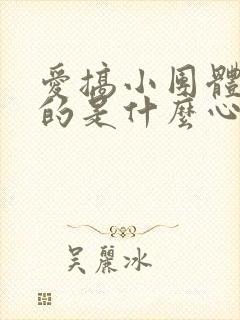 愛搞小團體
的是什麼心
吳麗冰